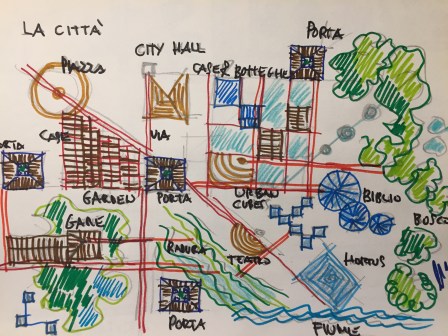 LA CITTÀ
PORTA
CITY HALL
PIAZZA
CASE R BOTTEGHE
CASE
VIA
PORTA
GARDEN
PORTA
URBAN
CUBES
BIBLIO
BOSCO
GARE
RADURA
TEATRO
HORTUS
PORTA
FIUME